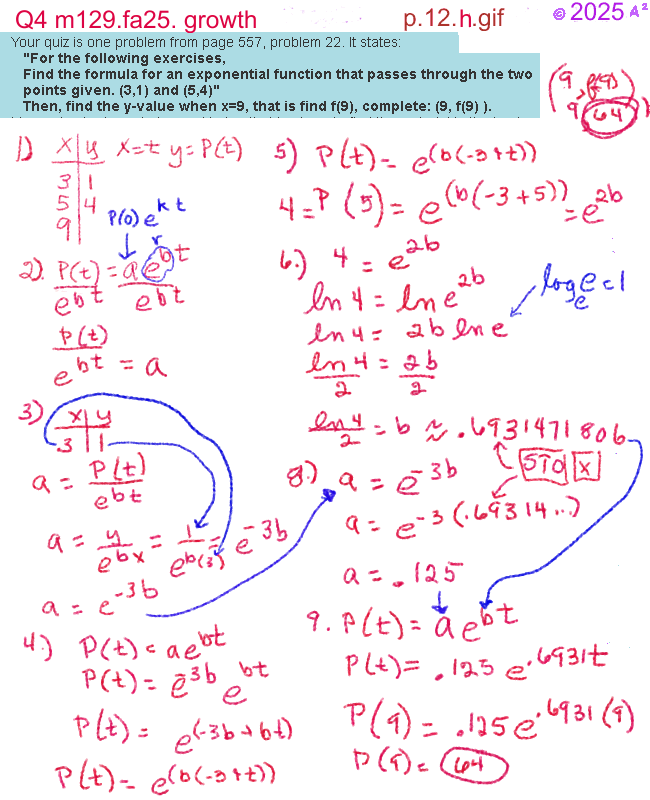 Q4 m129.fa25. growth
p.12.h.gif
© 2025 A²
Your quiz is one problem from page 557, problem 22. It states:
"For the following exercises,
Find the formula for an exponential function that passes through the two
points given. (3,1) and (5,4)"
Then, find the y-value when x=9, that is find f(9), complete: (9, f(9) ).
(9, f(9))
9, 64
1) x | y x=t y=P(t)
3 | 1
5 | 4
9 |
P(0) e^kt
r
2) P(t)/e^bt = a e^bt/e^bt
P(t)/e^bt = a
3) x | y
3 | 1
a = P(t)/e^bt
a = y/e^bx = 1/e^b(3) = e^-3b
a = e^-3b
4.) P(t) = ae^bt
P(t) = e^-3b e^bt
P(t) = e^(-3b+bt)
P(t) = e^(b(-3+t))
5) P(t) = e^(b(-3+t))
4 = P(5) = e^(b(-3+5)) = e^2b
6.) 4 = e^2b
ln 4 = ln e^2b
log_e e = 1
ln 4 = 2b ln e
ln 4/2 = 2b/2
ln 4/2 = b ≈ .6931471806
STO x
8.) a = e^-3b
a = e^-3(.69314...)
a = .125
9. P(t) = ae^bt
P(t) = .125 e^.6931t
P(9) = .125 e^.6931(9)
P(9) = 64